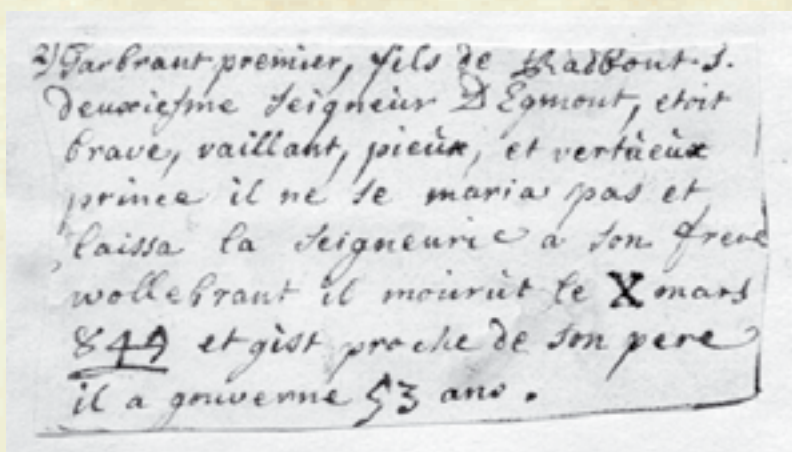 2) Garbrant premier, fils de Radbout. 1.
deuxiesme seigneur D Egmont, etoit
brave, vaillant, pieùx, et vertùeùx
prince il ne se maria pas et
laissa la seigneurie a son frere
wollebrant il moùrùt le X mars
849 et gist proche de son pere
il a gouverne 53 ans.